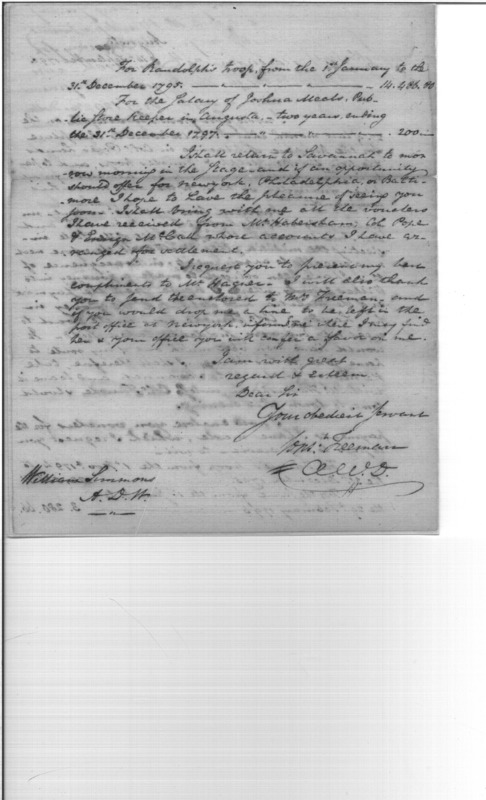 For Randolph's troop, from the 1st January to the
31st December 1795. 14.486.90
For the Salary of Joshua Meals. Pub-
lic Store Keeper in Augusta, - two years ending
the 31st December 1797. 200
I shall return to Savannah to mor
row morning in the Stage and if an opportunity
should offer for New york, Philadelphia, or Balti-
more I hope to have the pleasure of seeing you
soon. I shall bring with me all the Vouchers
I have received from Mr Habersham, Col. Pope
& Ensign McCall whose accounts I have ar-
ranged for settlement.
I request you to present my best
compliments to Mr Hagner. I will also thank
you to send the enclosed to Mrs Freeman, and
if you would drop me a line to be left in the
post office at New york, where I may find
her & your office you will confer a favor on me.
I am with great
regard & esteem
Dear Sir
Your obedient Servant
Const. Freeman
William Simmons
A. D. W.